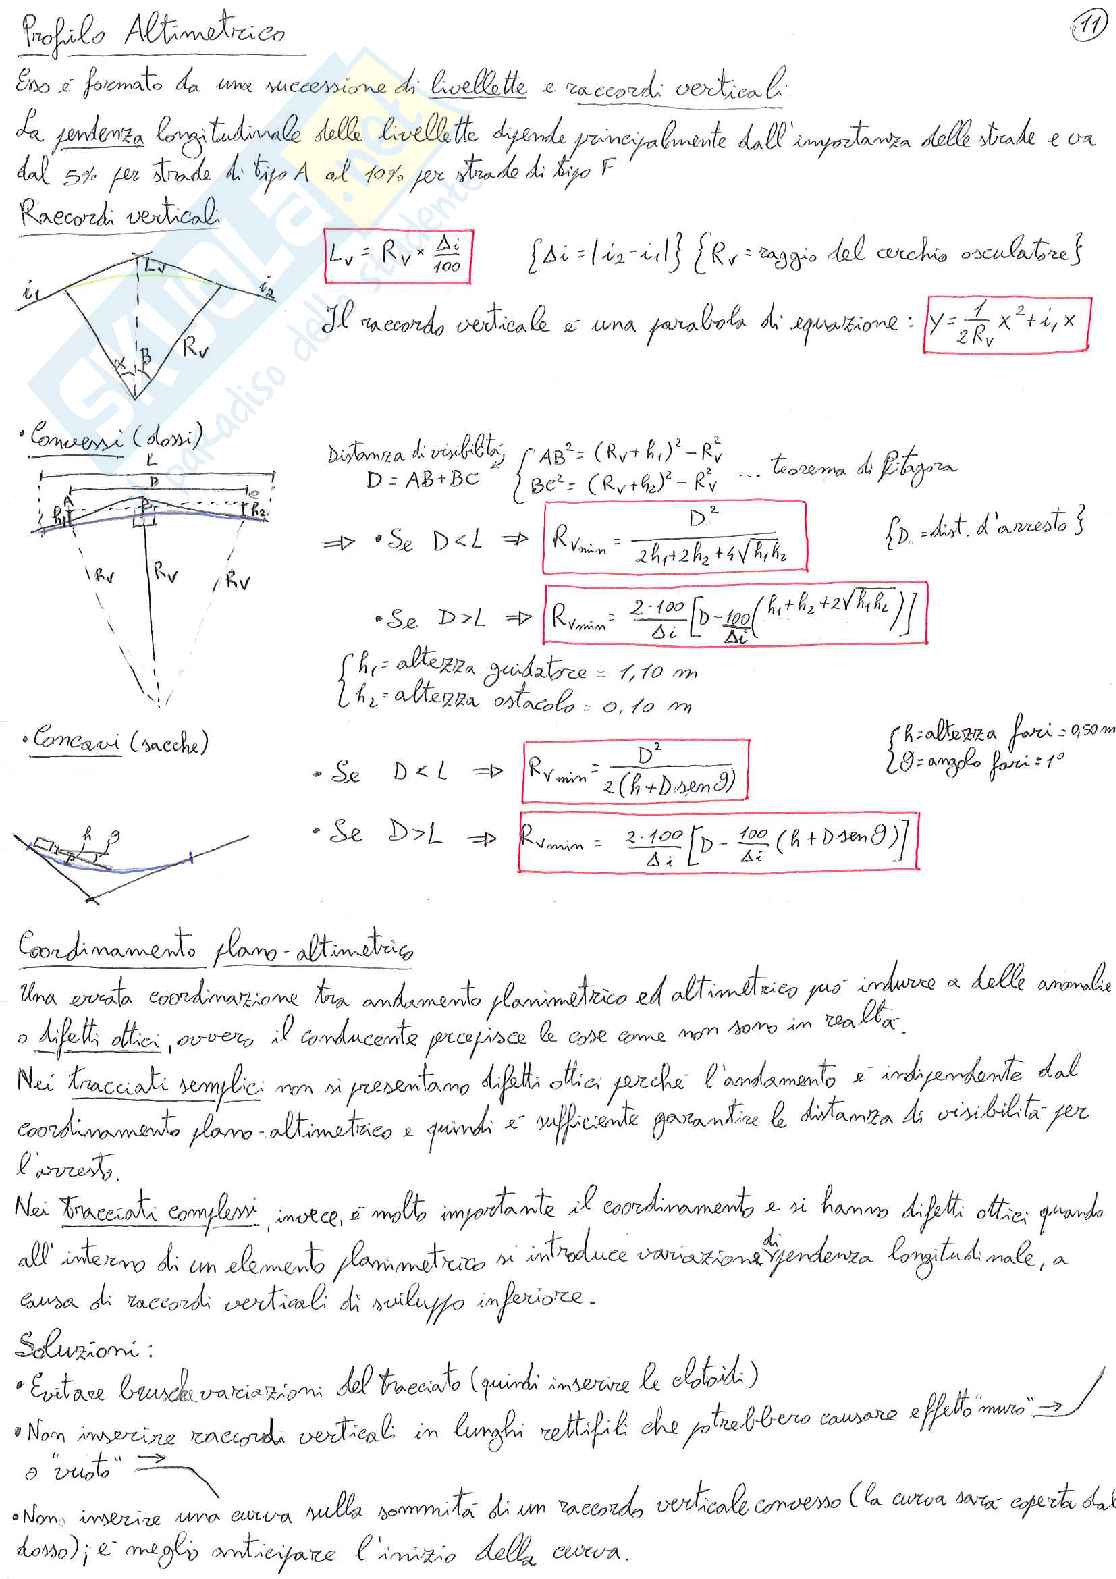 11
Profilo Altimetrico
Esso è formato da una successione di livellette e raccordi verticali
La pendenza longitudinale delle livellette dipende principalmente dall'importanza delle strade e va
dal 5% per strade di tipo A al 10% per strade di tipo F
Raccordi verticali
i₁ Lv i₂
α β Rv
Lv = Rv × Δi/100 {Δi = |i₂-i₁|} {Rv = raggio del cerchio osculatore}
Il raccordo verticale è una parabola di equazione: y = 1/(2Rv) x² + i₁x
• Convessi (dossi)
L
D
A B C
h₁ h₂
Rv Rv Rv
Distanza di visibilità, D = AB+BC { AB² = (Rv+h₁)² - Rv²
BC² = (Rv+h₂)² - Rv² ... teorema di Pitagora
⇒ • Se D<L ⇒ Rvmin = D²/(2h₁+2h₂+4√h₁h₂) {D = dist. d'arresto}
• Se D>L ⇒ Rvmin = 2·100/Δi [D - 100/Δi (h₁+h₂+2√h₁h₂)]
{ h₁ = altezza guidatore = 1,10 m
h₂ = altezza ostacolo = 0,10 m
• Concavi (sacche)
{ h = altezza fari = 0,50 m
ϑ = angolo fari = 1°
• Se D<L ⇒ Rvmin = D²/(2(h+D·senϑ))
h ϑ
• Se D>L ⇒ Rvmin = 2·100/Δi [D - 100/Δi (h+D senϑ)]
Coordinamento plano-altimetrico
Una errata coordinazione tra andamento planimetrico ed altimetrico può indurre a delle anomalie
o difetti ottici, ovvero il conducente percepisce le cose come non sono in realtà.
Nei tracciati semplici non si presentano difetti ottici perché l'andamento è indipendente dal
coordinamento plano-altimetrico e quindi è sufficiente garantire le distanza di visibilità per
l'arresto.
Nei tracciati complessi, invece, è molto importante il coordinamento e si hanno difetti ottici quando
all'interno di un elemento planimetrico si introduce variazione di pendenza longitudinale, a
causa di raccordi verticali di sviluppo inferiore.
Soluzioni:
• Evitare brusche variazioni del tracciato (quindi inserire le clotoidi)
• Non inserire raccordi verticali in lunghi rettifili che potrebbero causare effetto "muro" →
o "vuoto" →
• Non inserire una curva sulla sommità di un raccordo verticale convesso (la curva sarà coperta dal
dosso); è meglio anticipare l'inizio della curva.
SKUOLA.net
paradiso dello studente